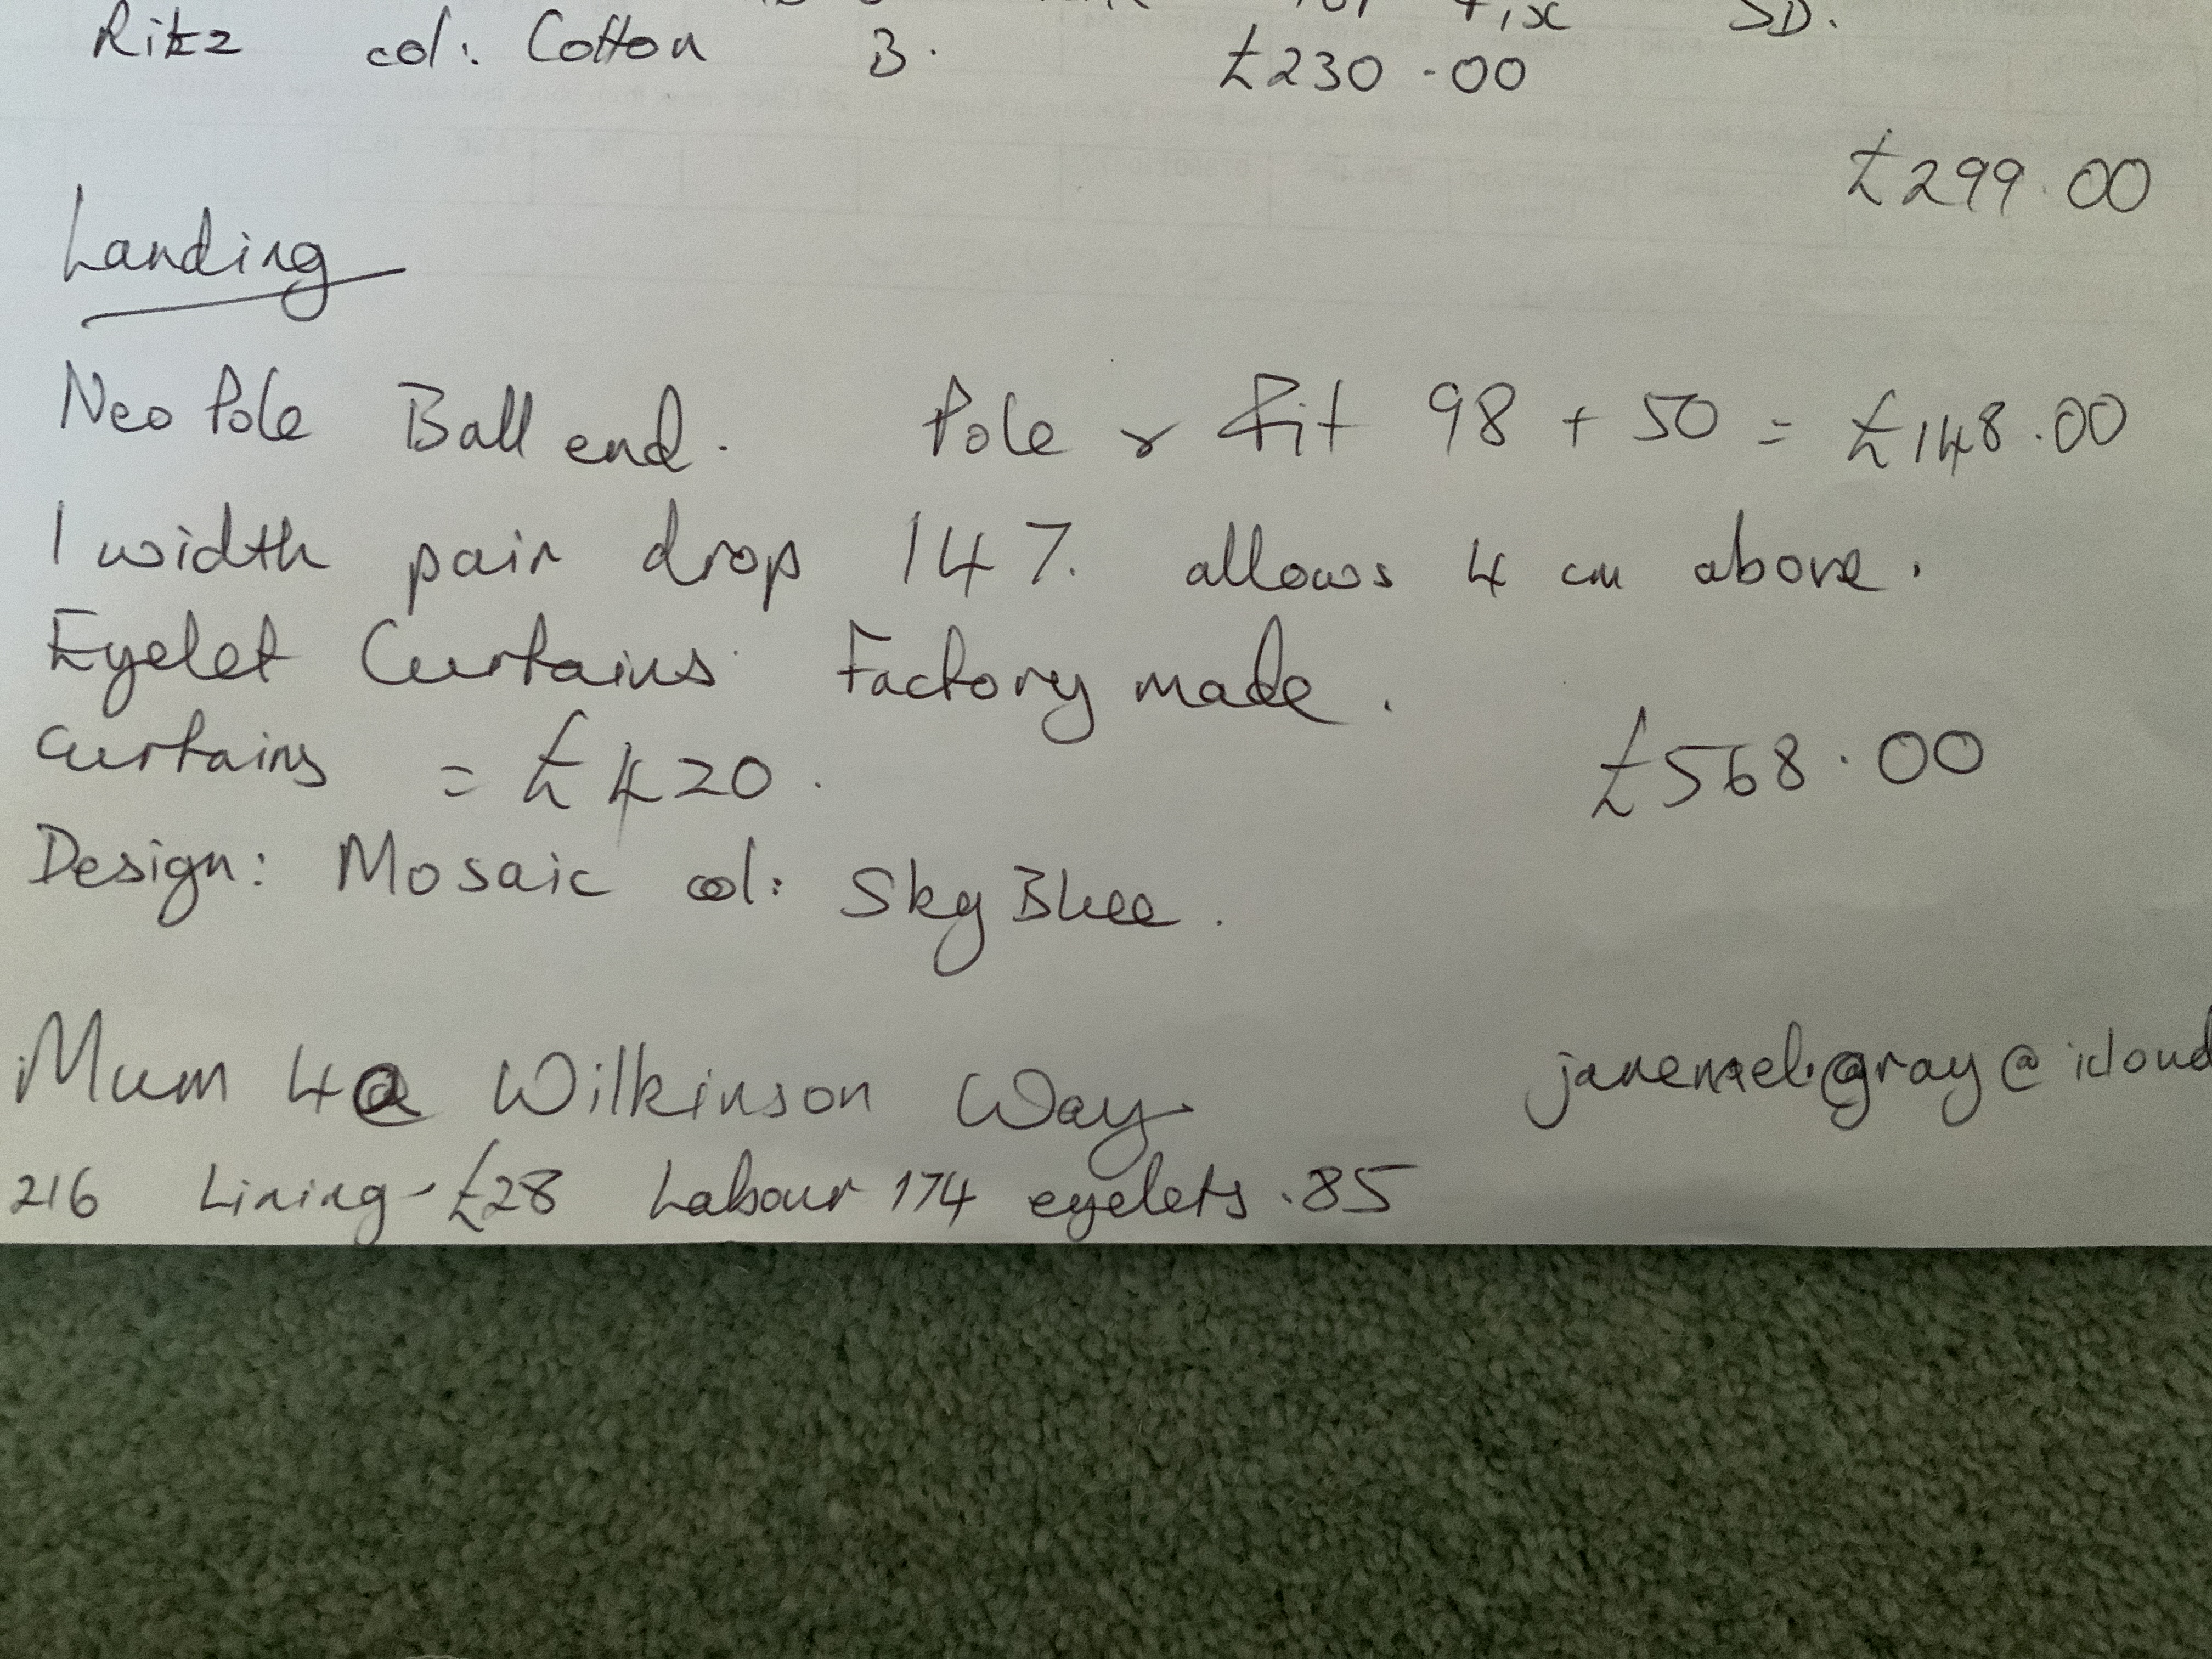 Ritz col: Cotton B. £230.00
£299.00
Landing
Neo Pole Ball end. Pole & Fit 98 + 50 = £148.00
1 width pair drop 147. allows 4 cm above.
Eyelet Curtains Factory made.
Curtains = £420.
£568.00
Design: Mosaic col: Sky Blue.
Mum 4a Wilkinson Way
@icloud
216 Lining - £28 Labour 174 eyelets .85